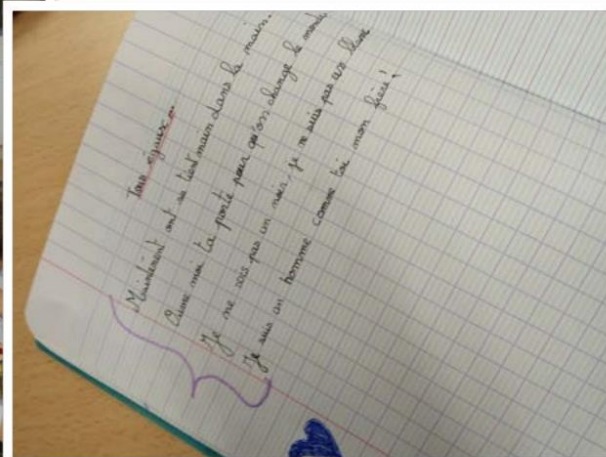 Tous égaux...
Maintenant ont se tient main dans la main.
Ouvre moi ta porte pour qu'on change le monde,
Je ne suis pas un noir, je ne suis pas un blanc
Je suis un homme comme toi mon frère !